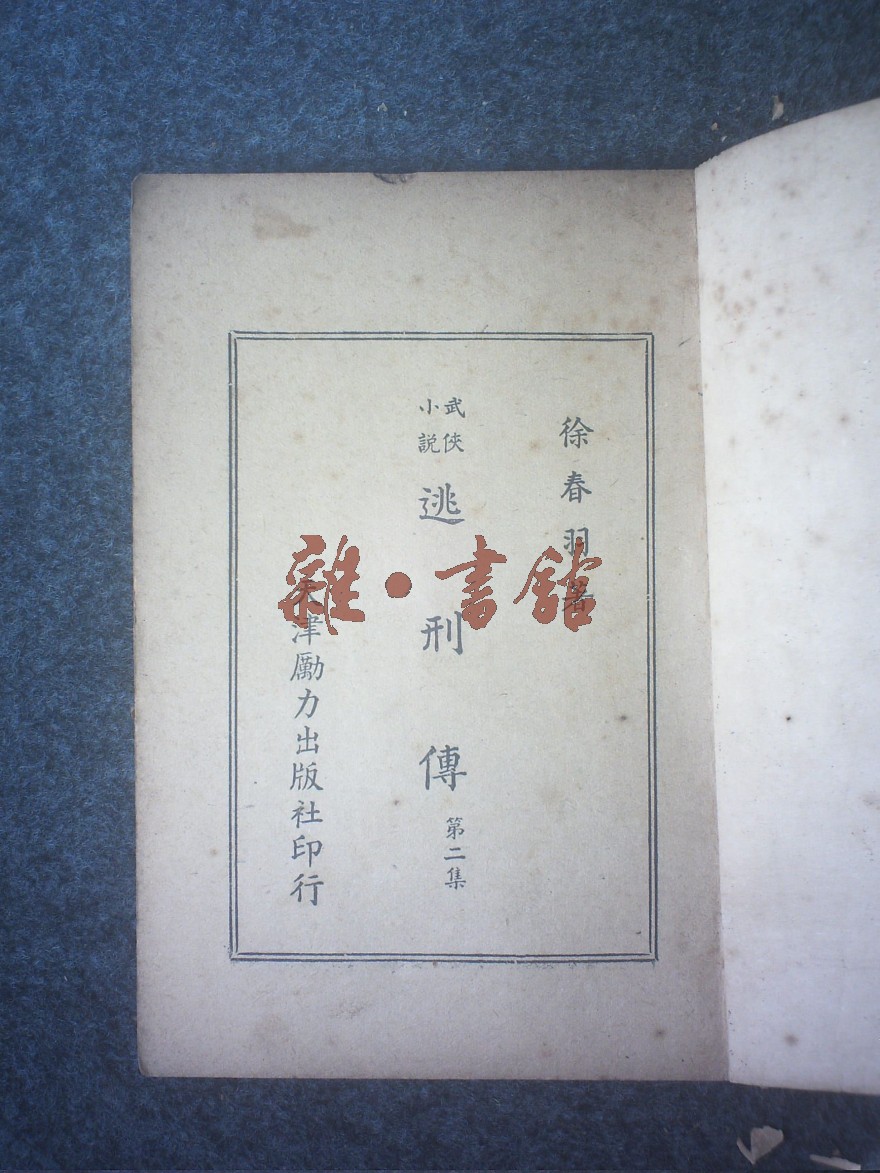 徐春羽著
武俠小説
逃刑傳
第二集
天津勵力出版社印行
雜·書館